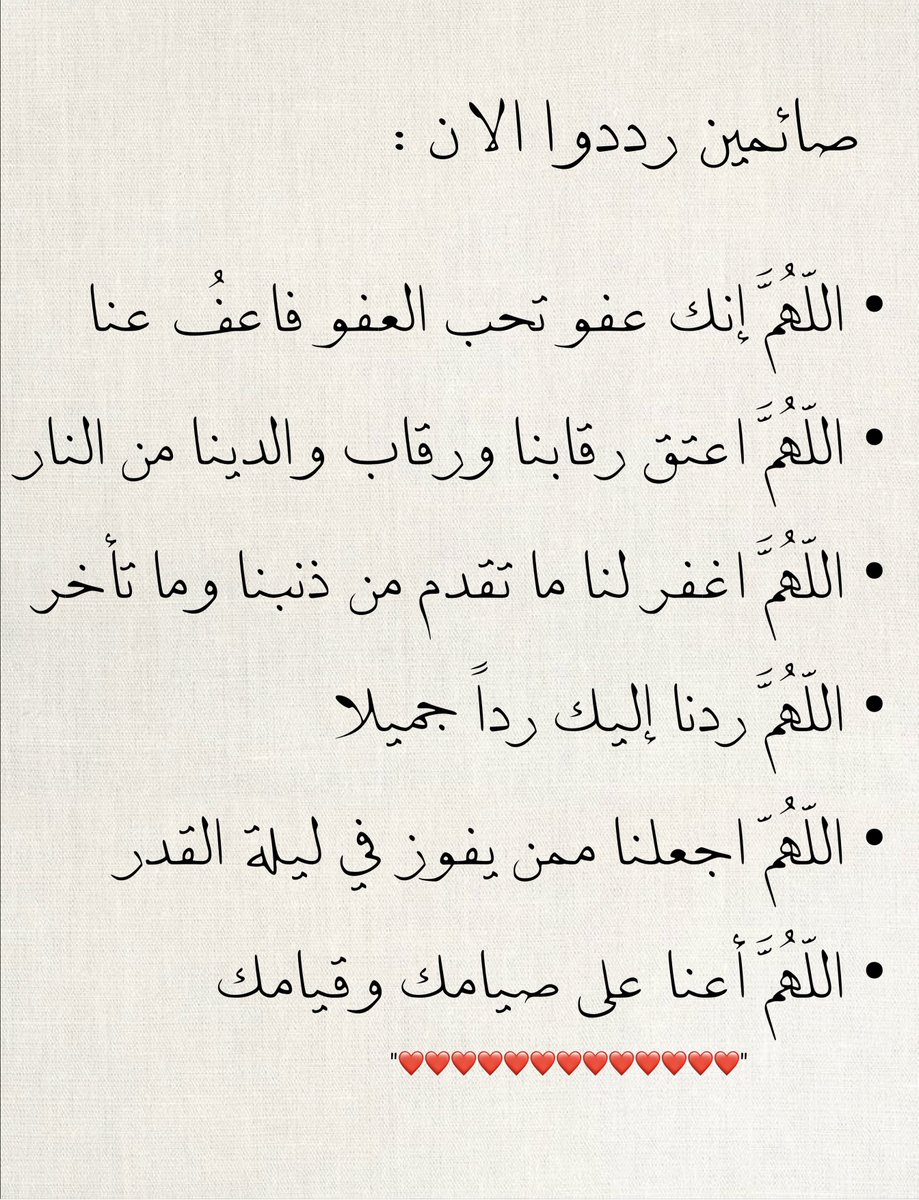 صائمين رددوا الان :
• اللّهُمَّ إنك عفو تحب العفو فاعفُ عنا
• اللّهُمَّ اعتق رقابنا ورقاب والدينا من النار
• اللّهُمَّ اغفر لنا ما تقدم من ذنبنا وما تأخر
• اللّهُمَّ ردنا إليك رداً جميلا
• اللّهُمّ اجعلنا ممن يفوز في ليلة القدر
• اللّهُمَّ أعنا على صيامك وقيامك
"❤️❤️❤️❤️❤️❤️❤️❤️❤️❤️❤️❤️❤️"